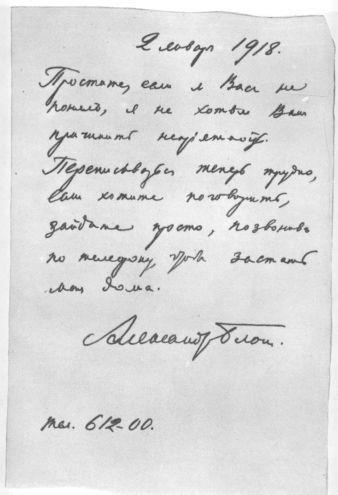 2 января 1918.
Простите, если я Вас не
понял, я не хотел Вам
причинить неприятность.
Переписываться теперь трудно,
если хотите поговорить,
зайдите просто, позвонив
по телефону, чтобы застать
меня дома.
Александр Блок.
тел. 612-00.